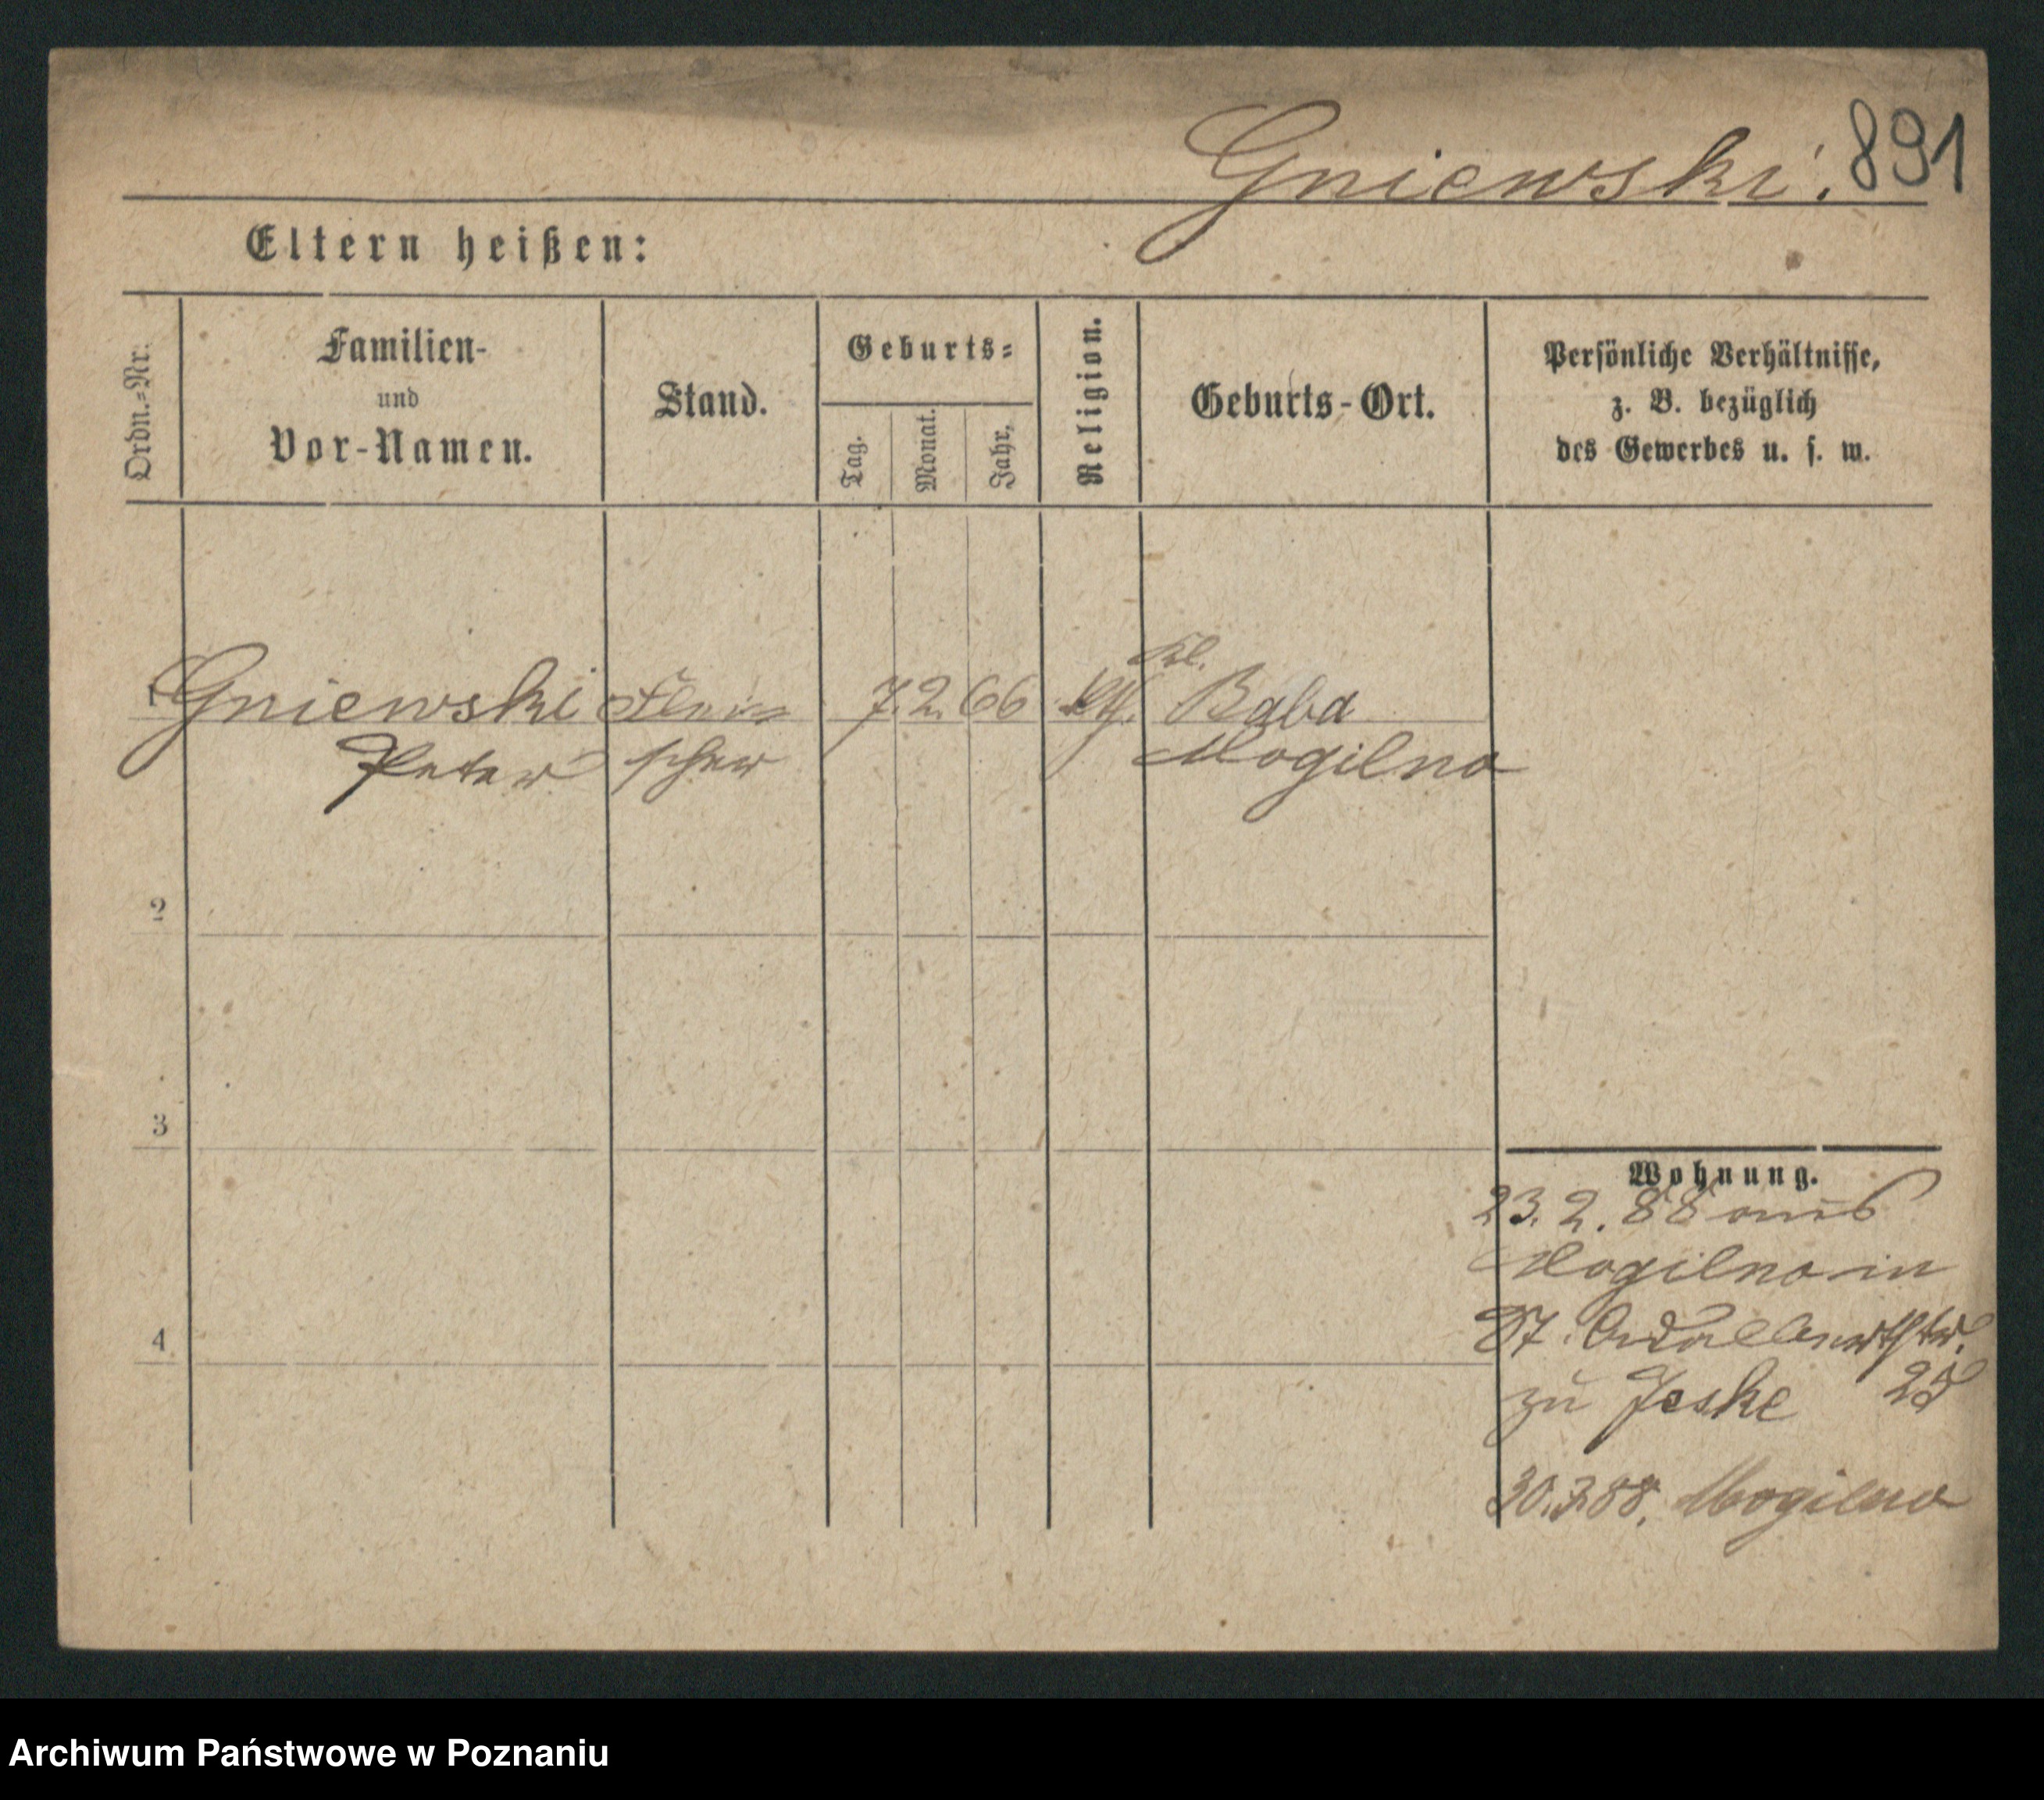 Gniewski. 891
Eltern heißen:
Ordn.-Nr.
Familien-
und
Vor-Namen.
Stand.
Geburts-
Tag.
Monat.
Jahr.
Religion.
Geburts-Ort.
Persönliche Verhältnisse,
z. B. bezüglich
des Gewerbes u. s. w.
Kl.
1 Gniewski Flei- 7. 2. 66 kth. Baba
Peter scher Mogilno
2
3
4
Wohnung.
23. 2. 88 aus
Mogilno in
zu Jeske 25
30.3.88. Mogilno
Archiwum Państwowe w Poznaniu